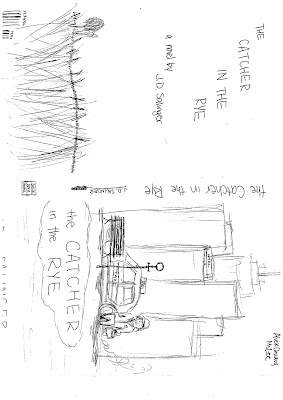 THE
CATCHER
IN THE
RYE
a novel by J.D. Salinger
the Catcher in the Rye
J.D. SALINGER
the CATCHER
in the RYE
Alex
Mr Lee